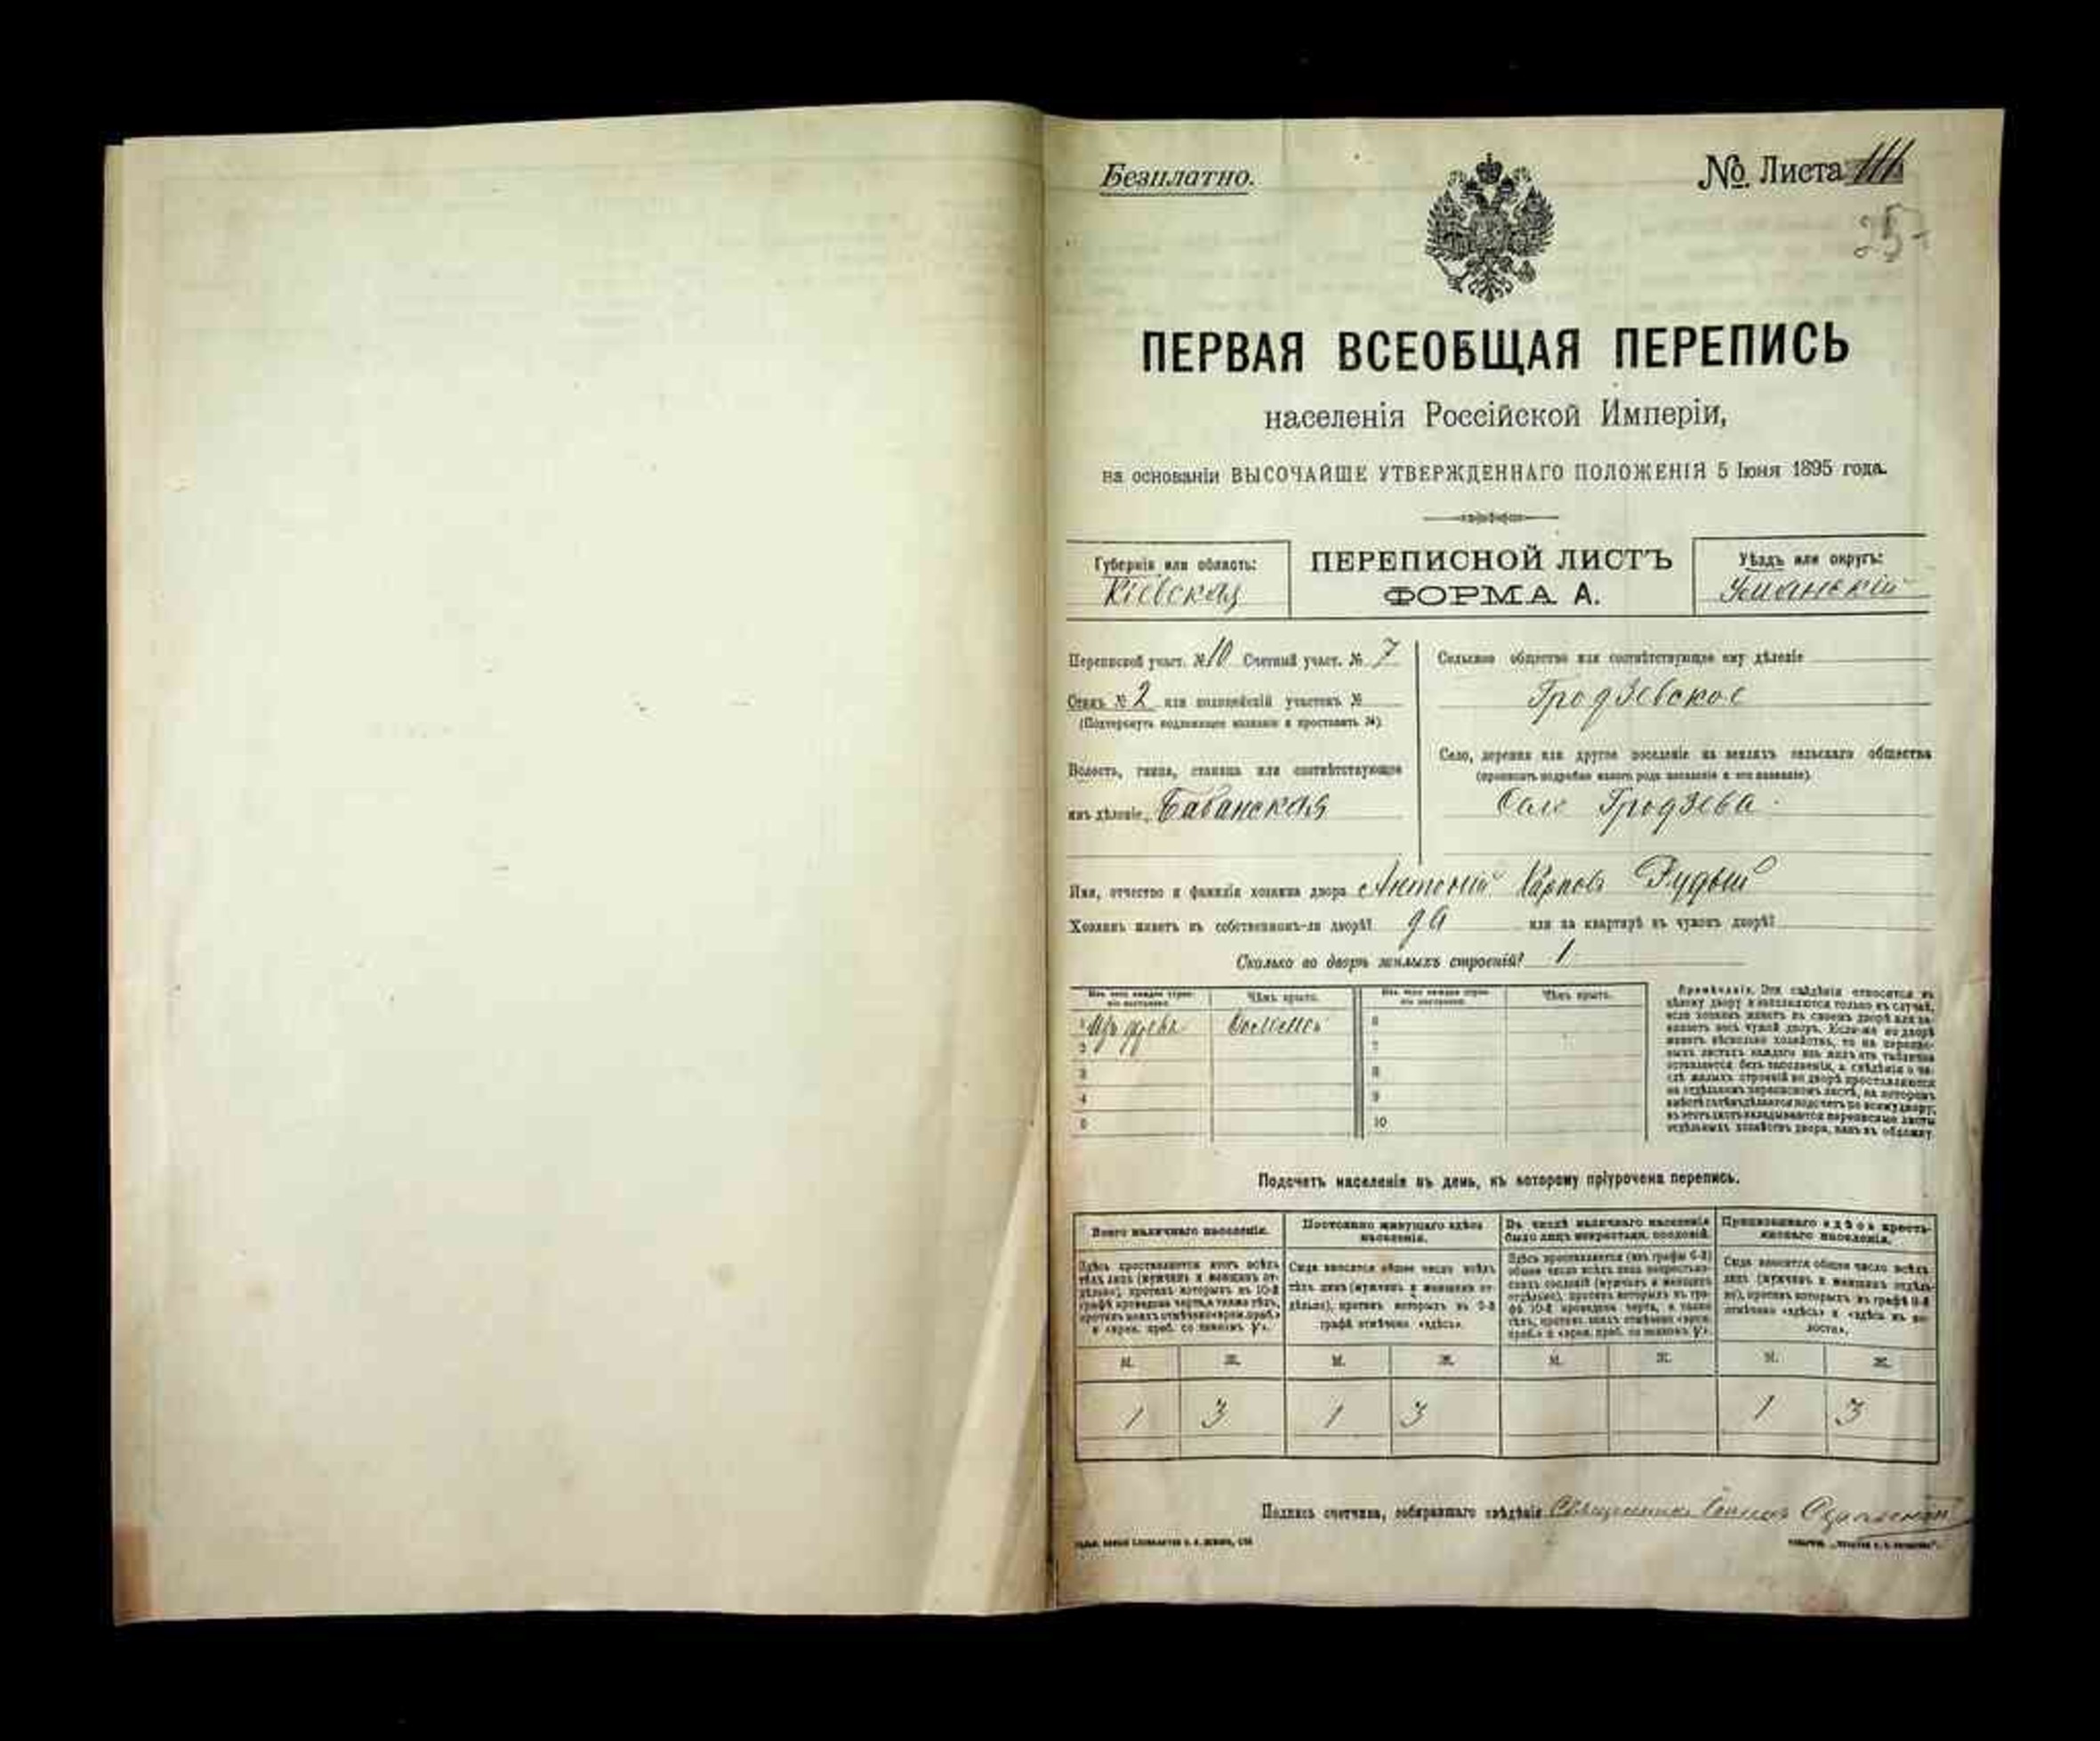 Безплатно.
№ Листа 111
25
ПЕРВАЯ ВСЕОБЩАЯ ПЕРЕПИСЬ
населенія Россійской Имперіи,
на основаніи ВЫСОЧАЙШЕ УТВЕРЖДЕННАГО ПОЛОЖЕНІЯ 5 Іюня 1895 года.
Губернія или область:
Кіевская
ПЕРЕПИСНОЙ ЛИСТЪ
ФОРМА А.
Уѣздъ или округъ:
Уманскій
Переписной участ. № 10 Счетный участ. № 7
Станъ № 2 или полицейскій участокъ №
(Подчеркнуть подлежащее названіе и проставить №).
Волость, гмина, станица или соотвѣтствующее
имъ дѣленіе Бабанская
Сельское общество или соотвѣтствующее ему дѣленіе
Гродзевское
Село, деревня или другое поселеніе на земляхъ сельскаго общества
(прописать подробно какого рода поселеніе и его названіе).
Село Гродзева
Имя, отчество и фамилія хозяина двора Антоній Карповъ Рудый
Хозяинъ живетъ въ собственномъ-ли дворѣ? да или на квартирѣ въ чужомъ дворѣ?
Сколько во дворѣ жилыхъ строеній? 1
Изъ чего каждое строеніе построено.
Чѣмъ крыто.
Изъ чего каждое строеніе построено.
Чѣмъ крыто.
1 Изъ дерева Соломою 6
2 7
3 8
4 9
5 10
Примѣчаніе. Эти свѣдѣнія относятся къ
цѣлому двору и заполняются только въ случаѣ,
если хозяинъ живетъ въ своемъ дворѣ или за-
нимаетъ весь чужой дворъ. Если-же во дворѣ
живетъ нѣсколько хозяйствъ, то на перепис-
ныхъ листахъ каждаго изъ нихъ эта табличка
оставляется безъ заполненія, а свѣдѣнія о чи-
слѣ жилыхъ строеній во дворѣ проставляются
на отдѣльномъ переписномъ листѣ, на которомъ
вмѣстѣ съ тѣмъ дѣлается подсчетъ по всему двору;
въ этотъ листъ вкладываются переписные листы
отдѣльныхъ хозяйствъ двора, какъ въ обложку.
Подсчетъ населенія въ день, къ которому пріурочена перепись.
Всего наличнаго населенія.
Здѣсь проставляется итогъ всѣхъ
тѣхъ лицъ (мужчинъ и женщинъ от-
дѣльно), противъ которыхъ въ 10-й
графѣ проведена черта, а также тѣхъ,
противъ коихъ отмѣчено «врем. преб.»
и «врем. преб. со знакомъ V».
Постоянно живущаго здѣсь
населенія.
Сюда вносится общее число всѣхъ
тѣхъ лицъ (мужчинъ и женщинъ от-
дѣльно), противъ которыхъ въ 9-й
графѣ отмѣчено «здѣсь».
Въ числѣ наличнаго населенія
было лицъ некрестьян. сословій.
Приписаннаго здѣсь кресть-
янскаго населенія.
Сюда вносится общее число всѣхъ
лицъ (мужчинъ и женщинъ отдѣль-
но), противъ которыхъ въ графѣ 8-й
отмѣчено «здѣсь» и «здѣсь въ во-
лости».
М. Ж. М. Ж. М. Ж. М. Ж.
1 3 1 3 1 3
Подпись счетчика, собиравшаго свѣдѣнія Священникъ Іоаннъ